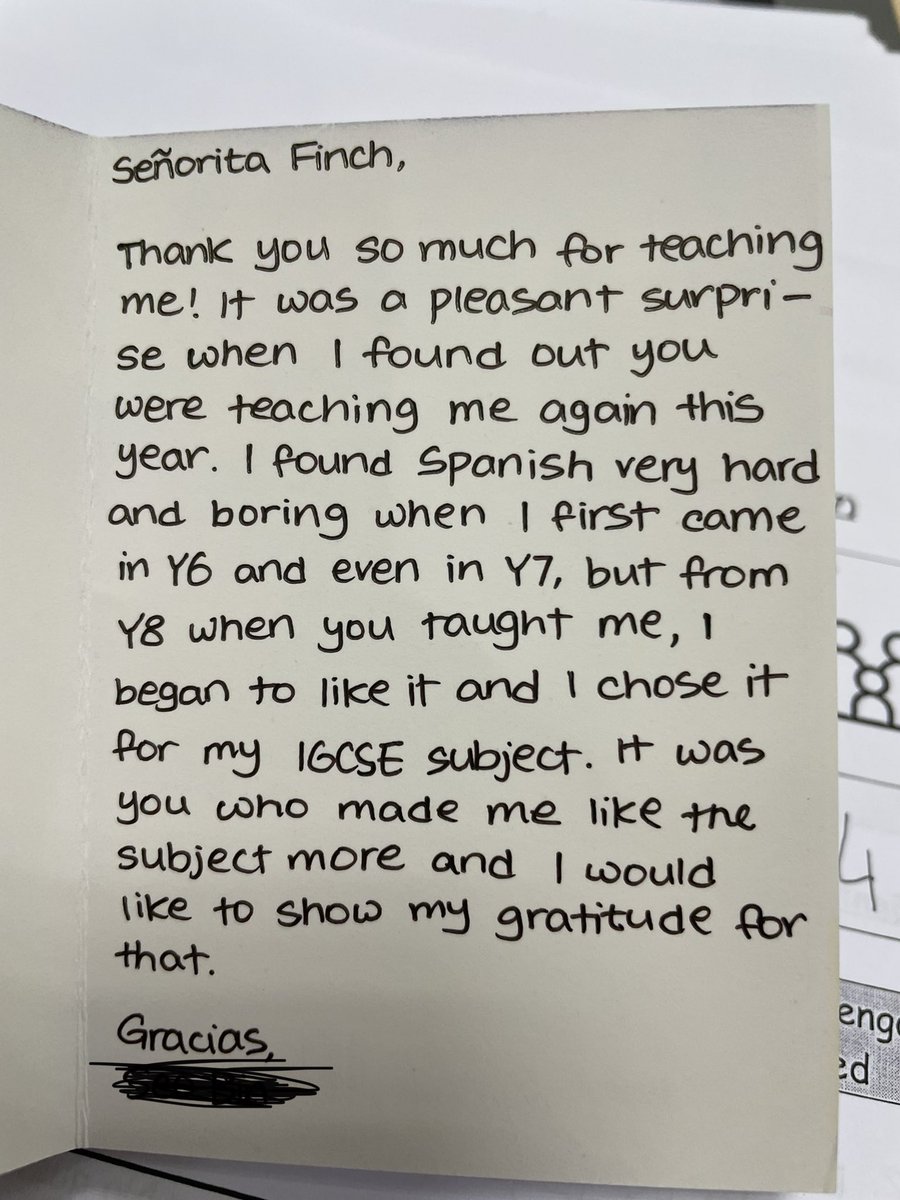 Señorita Finch,
Thank you so much for teaching
me! It was a pleasant surpri-
se when I found out you
were teaching me again this
year. I found Spanish very hard
and boring when I first came
in Y6 and even in Y7, but from
Y8 when you taught me, I
began to like it and I chose it
for my IGCSE subject. It was
you who made me like the
subject more and I would
like to show my gratitude for
that.
Gracias,
4